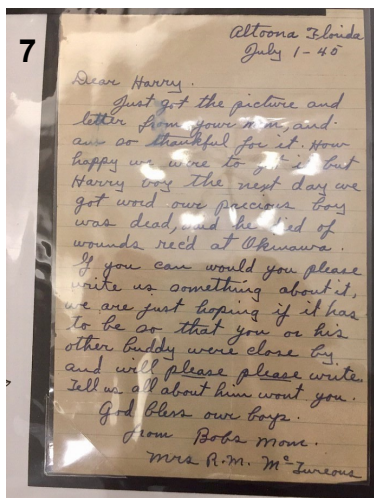 7
Altoona Florida
July 1-45
Dear Harry.
Just got the picture and
letter from your mom, and
am so thankful for it. How
happy we were to get it but
Harry boy the next day we
got word our precious boy
was dead, and he died of
wounds rec'd at Okinawa.
If you can would you please
write us something about it,
we are just hoping if it has
to be so that you or his
other buddy were close by
and will please please write
Tell us all about him wont you.
God bless our boys.
from Bobs Mom.
Mrs R.M.